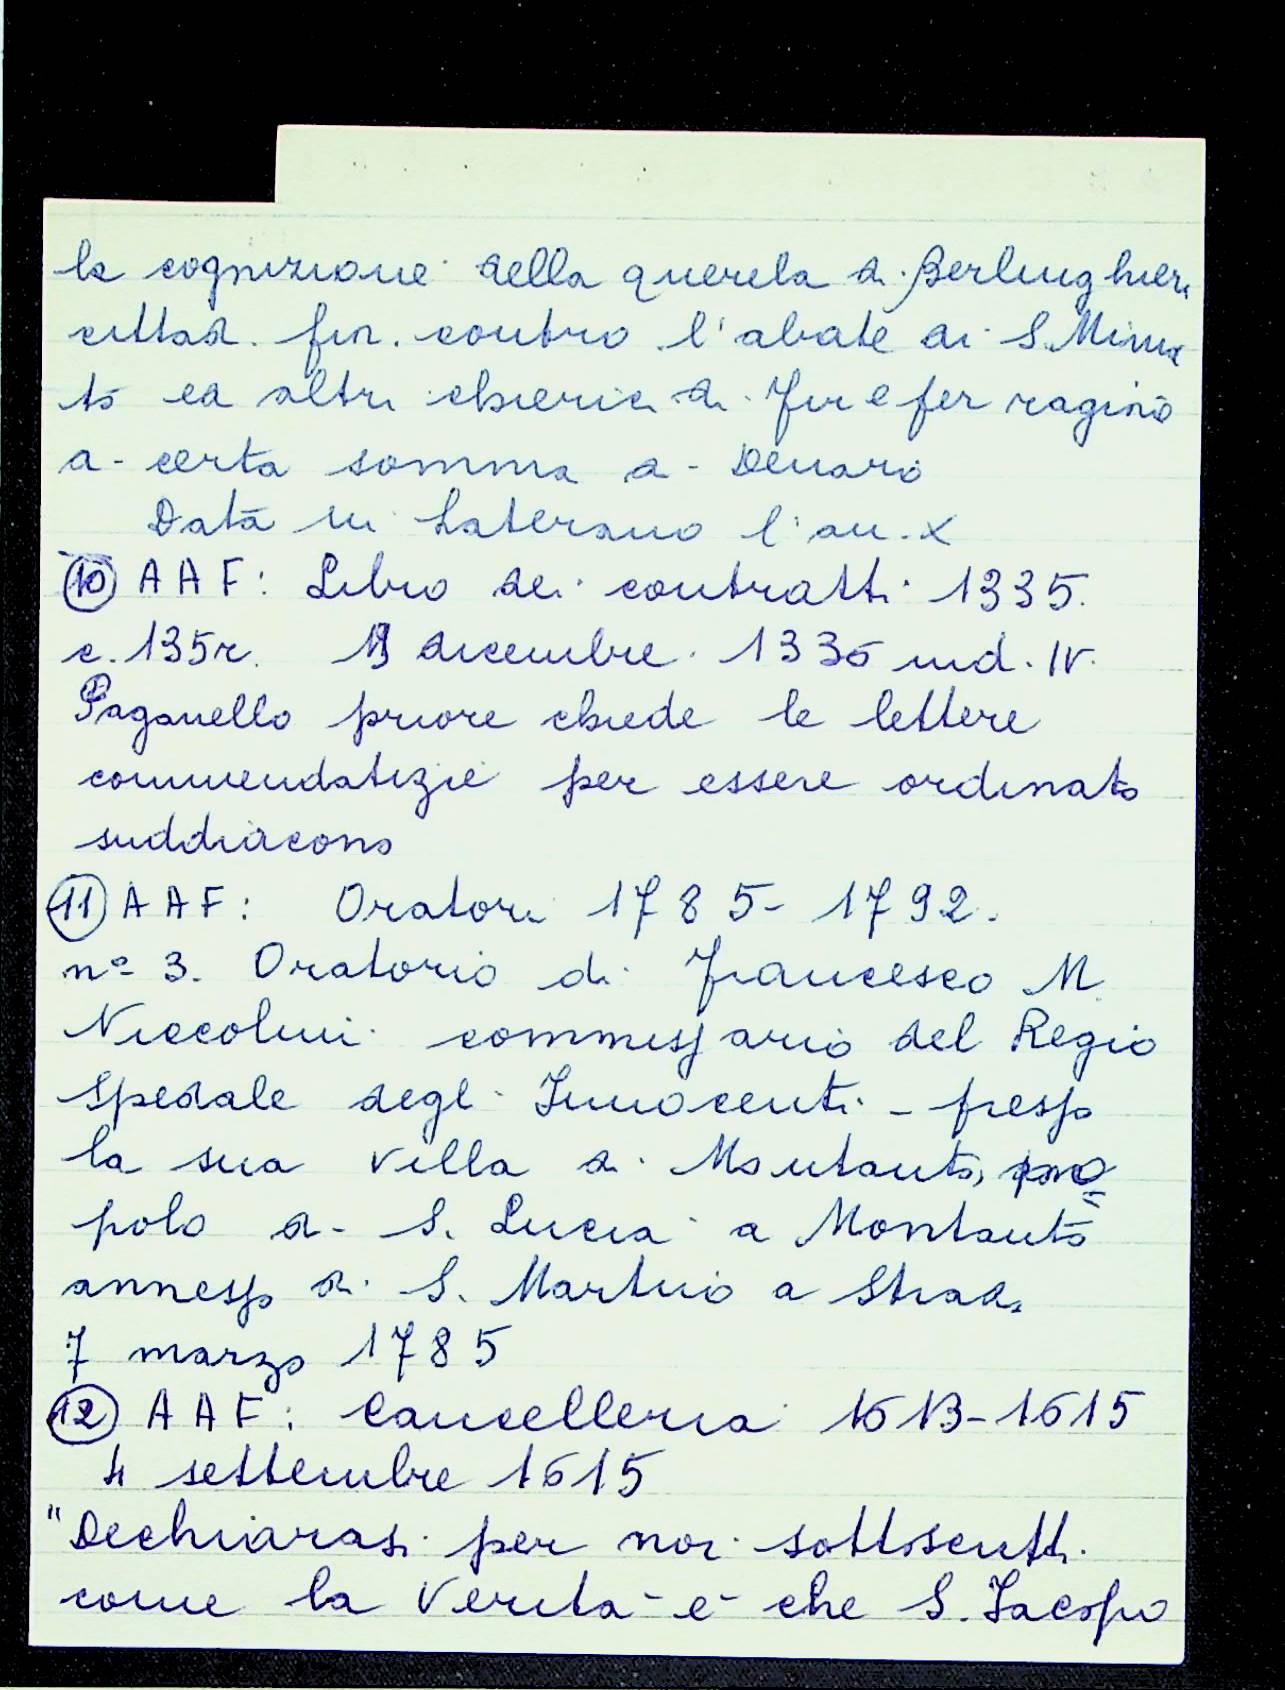 la cognizione della querela di Berlinghieri
cittad. fior. contro l'abate di S. Minia
to ed altri chierici di Fir e per ragione
di certa somma di denaro
Data in Laterano l'an. X
(10) AAF: Libro dei contratti 1335.
c. 135r. dicembre 1335 ind. IV.
Paganello priore chiede le lettere
commendatizie per essere ordinato
suddiacono
(11) AAF: Oratori 1785-1792.
n° 3. Oratorio di Francesco M.
Niccolini commissario del Regio
Spedale degl'Innocenti - presso
la sua villa di Montauto, po=
polo di S. Lucia a Montauto
annesso di S. Martino a Strada
7 marzo 1785
(12) AAF: Cancelleria 1613-1615
4 settembre 1615
"Dechiarasi per noi sottoscritti
come la verità è che S. Jacopo